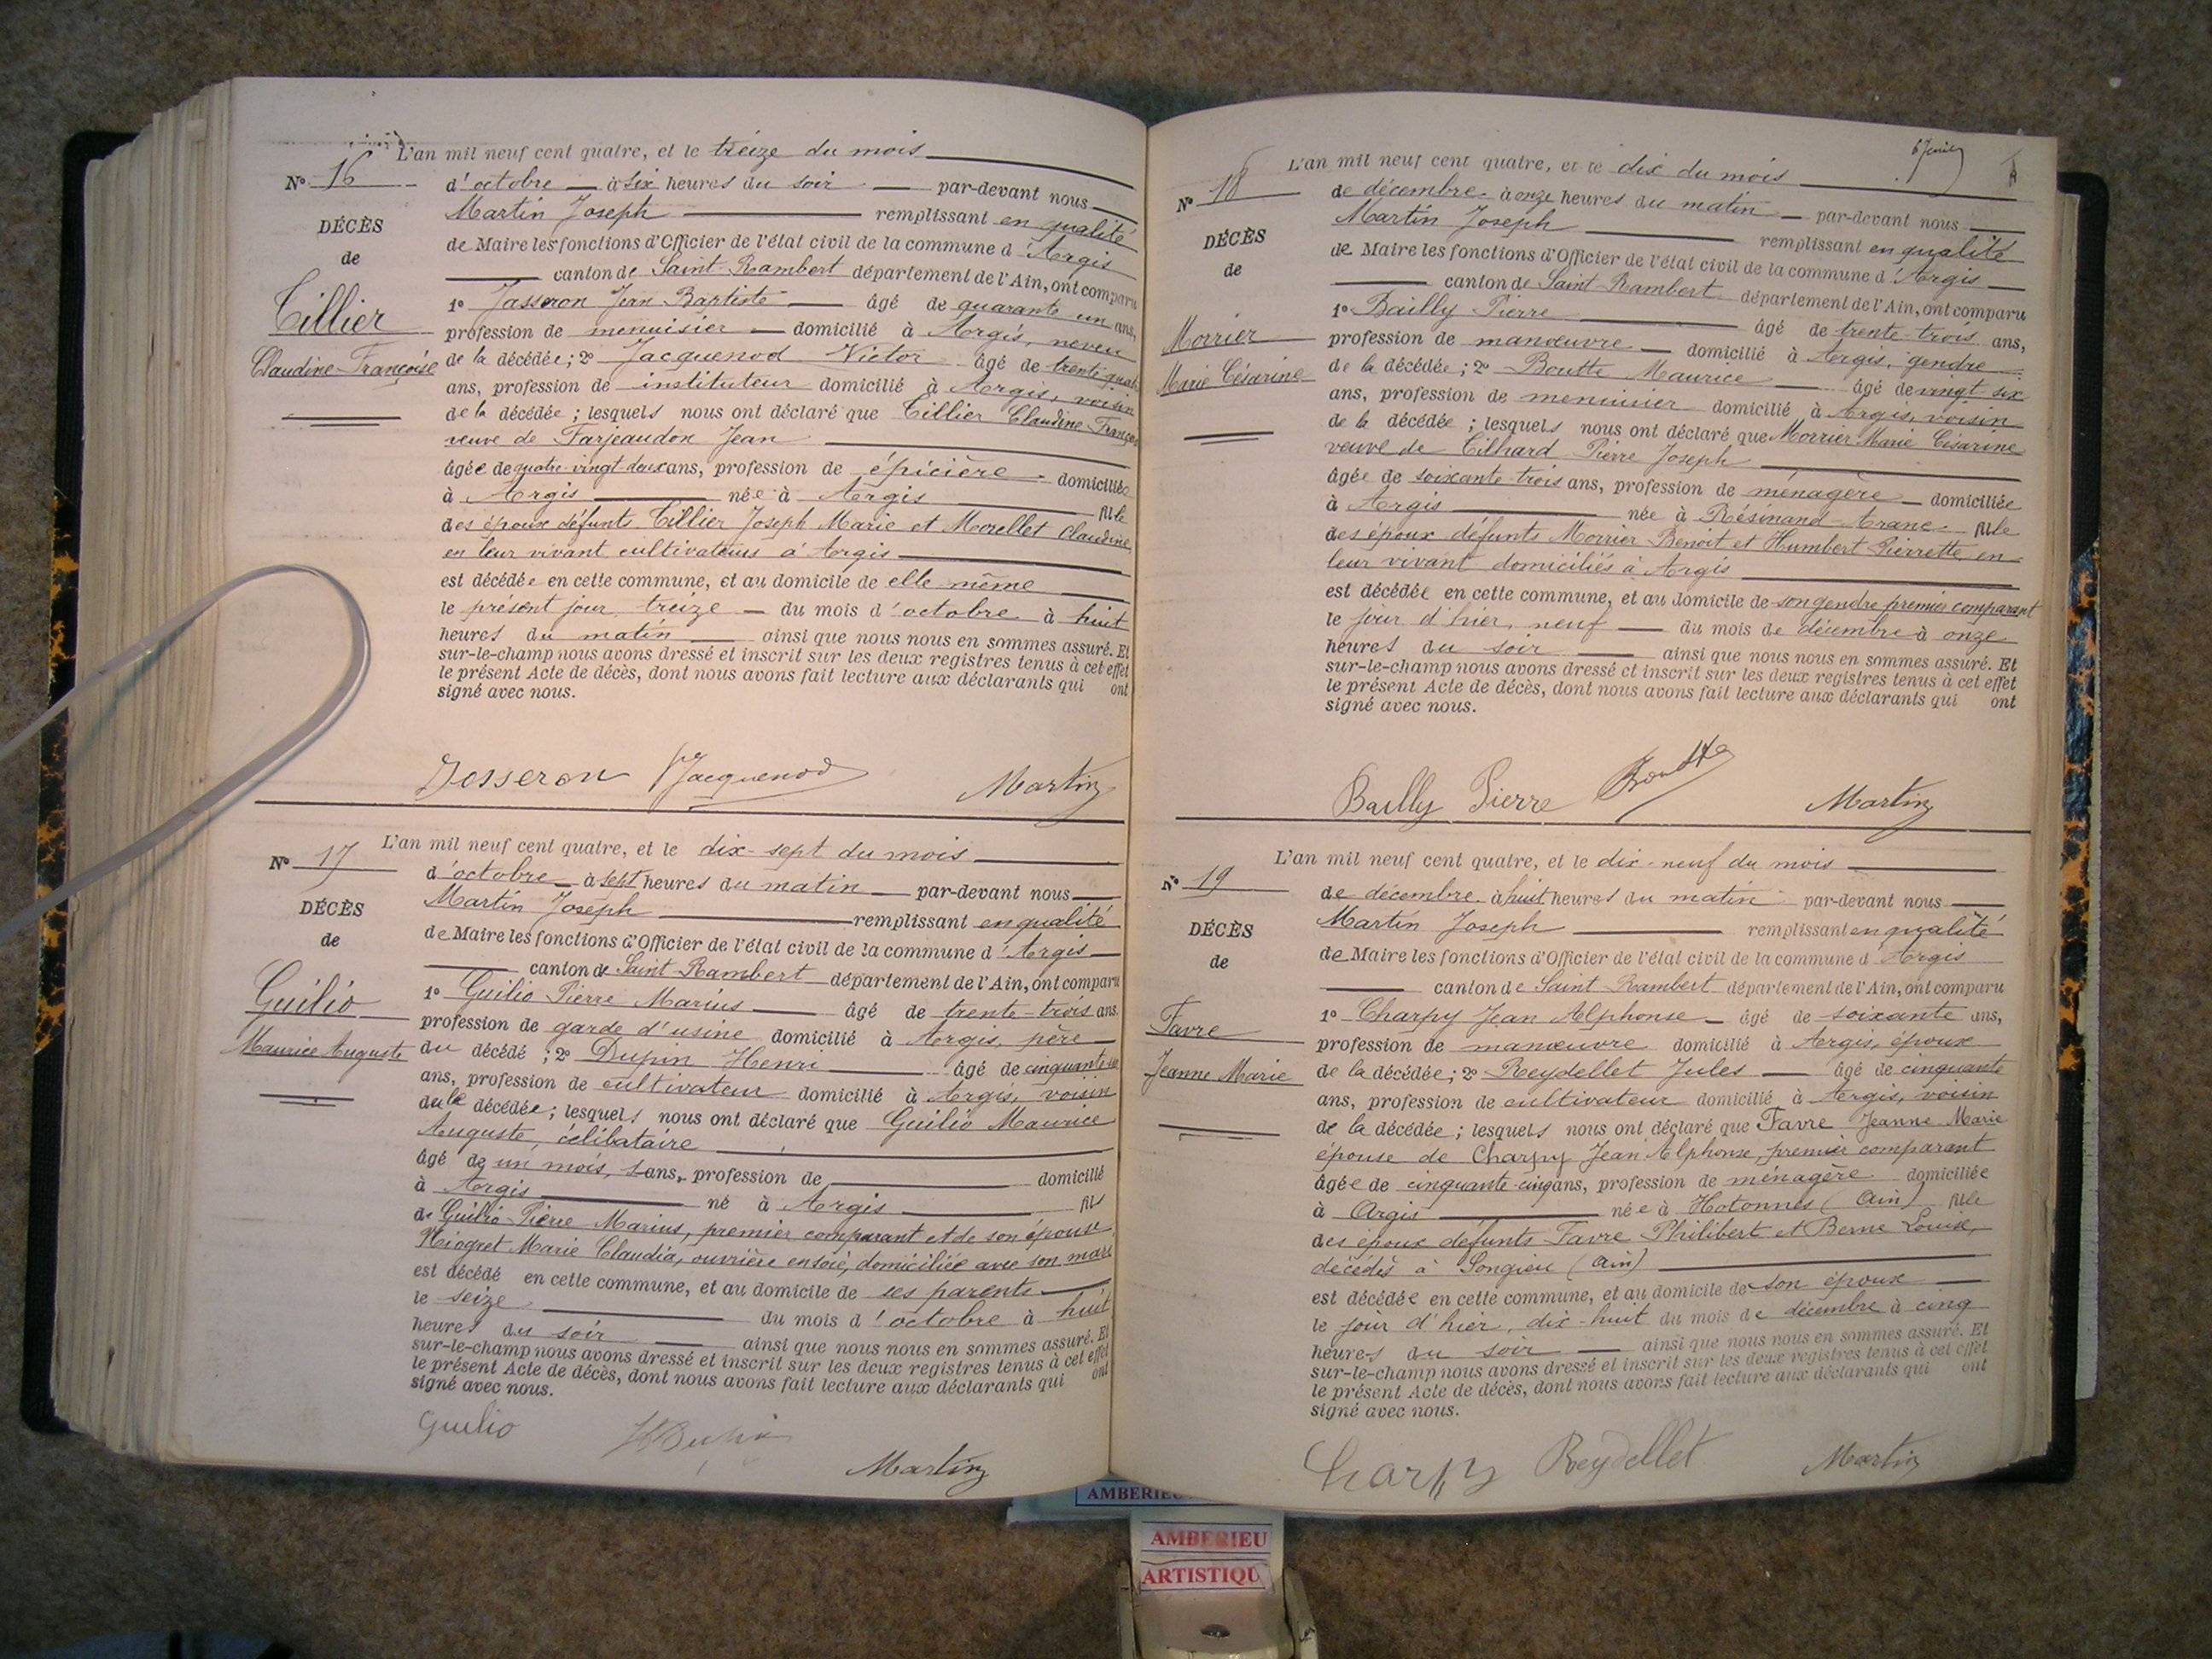 L'an mil neuf cent quatre, et le treize du mois
N° 16 d'octobre à six heures du soir par-devant nous
Martin Joseph remplissant en qualité
DÉCÈS
de Maire les fonctions d'Officier de l'état civil de la commune d'Argis
de
canton de Saint-Rambert département de l'Ain, ont comparu
Tillier
1° Jasseron Jean Baptiste âgé de quarante un ans,
profession de menuisier domicilié à Argis, neveu
Claudine-Françoise
de la décédée; 2° Jacquenod Victor âgé de trente
ans, profession de instituteur domicilié à Argis, voisin
de la décédée; lesquels nous ont déclaré que Tillier Claudine Françoise
veuve de Farjeaudon Jean
âgée de quatre-vingt-deux ans, profession de épicière domiciliée
à Argis née à Argis fille
des époux défunts Tillier Joseph Marie et Morellet Claudine,
en leur vivant cultivateurs à Argis
est décédée en cette commune, et au domicile de elle-même
le présent jour, treize du mois d'octobre à huit
heures du matin ainsi que nous nous en sommes assuré. Et
sur-le-champ nous avons dressé et inscrit sur les deux registres tenus à cet effet
le présent Acte de décès, dont nous avons fait lecture aux déclarants qui ont
signé avec nous.
Josseron Jacquenod Martin
L'an mil neuf cent quatre, et le dix-sept du mois
N° 17 d'octobre à sept heures du matin par-devant nous
Martin Joseph remplissant en qualité
DÉCÈS
de Maire les fonctions d'Officier de l'état civil de la commune d'Argis
de
canton de Saint-Rambert département de l'Ain, ont comparu
Guilio
1° Guilio Pierre Marius âgé de trente-trois ans.
profession de garde d'usine domicilié à Argis, père
Maurice Auguste
du décédé; 2° Dupin Henri âgé de cinquante
ans, profession de cultivateur domicilié à Argis, voisin
du décédée; lesquels nous ont déclaré que Guilio Maurice
Auguste, célibataire
âgé de un mois, sans, profession de domicilié
à Argis né à Argis fils
de Guilio Pierre Marius, premier comparant et de son épouse
Niogret Marie Claudia, ouvrière en soie, domiciliée avec son mari
est décédé en cette commune, et au domicile de ses parents
le seize du mois d'octobre à huit
heures du soir ainsi que nous nous en sommes assuré. Et
sur-le-champ nous avons dressé et inscrit sur les deux registres tenus à cet effet
le présent Acte de décès, dont nous avons fait lecture aux déclarants qui ont
signé avec nous.
Guilio HDupin
Martin
L'an mil neuf cent quatre, et le dix du mois
N° 18 de décembre à onze heures du matin par-devant nous
Martin Joseph remplissant en qualité
DÉCÈS
de Maire les fonctions d'Officier de l'état civil de la commune d'Argis
de
canton de Saint-Rambert département de l'Ain, ont comparu
1° Bailly Pierre âgé de trente-trois ans,
Morrier
profession de manœuvre domicilié à Argis, gendre
Marie Césarine
de la décédée; 2° Boutte Maurice âgé de vingt-six
ans, profession de menuisier domicilié à Argis, voisin
de la décédée; lesquels nous ont déclaré que Morrier Marie Césarine
veuve de Cilhard Pierre Joseph
âgée de soixante-trois ans, profession de ménagère domiciliée
à Argis née à Résinand-Aranc fille
des époux défunts Morrier Benoit et Humbert Pierrette, en
leur vivant domiciliés à Argis
est décédée en cette commune, et au domicile de son gendre premier comparant
le jour d'hier, neuf du mois de décembre à onze
heures du soir ainsi que nous nous en sommes assuré. Et
sur-le-champ nous avons dressé et inscrit sur les deux registres tenus à cet effet
le présent Acte de décès, dont nous avons fait lecture aux déclarants qui ont
signé avec nous.
Bailly Pierre Boutte Martin
L'an mil neuf cent quatre, et le dix-neuf du mois
N° 19 de décembre à huit heures du matin par-devant nous
Martin Joseph remplissant en qualité
DÉCÈS
de Maire les fonctions d'Officier de l'état civil de la commune d'Argis
de
canton de Saint-Rambert département de l'Ain, ont comparu
1° Charpy Jean Alphonse âgé de soixante ans,
Favre
profession de manœuvre domicilié à Argis, époux
Jeanne Marie
de la décédée; 2° Reydellet Jules âgé de cinquante
ans, profession de cultivateur domicilié à Argis, voisin
de la décédée; lesquels nous ont déclaré que Favre Jeanne Marie
épouse de Charpy Jean Alphonse, premier comparant
âgée de cinquante-cinq ans, profession de ménagère domiciliée
à Argis née à Hotonnes (Ain) fille
des époux défunts Favre Philibert et Berne Louise,
décédés à Songieu (Ain)
est décédée en cette commune, et au domicile de son époux
le jour d'hier, dix-huit du mois de décembre à cinq
heures du soir ainsi que nous nous en sommes assuré. Et
sur-le-champ nous avons dressé et inscrit sur les deux registres tenus à cet effet
le présent Acte de décès, dont nous avons fait lecture aux déclarants qui ont
signé avec nous.
Charpy Reydellet Martin
AMBERIEU
AMBERIEU
ARTISTIQU